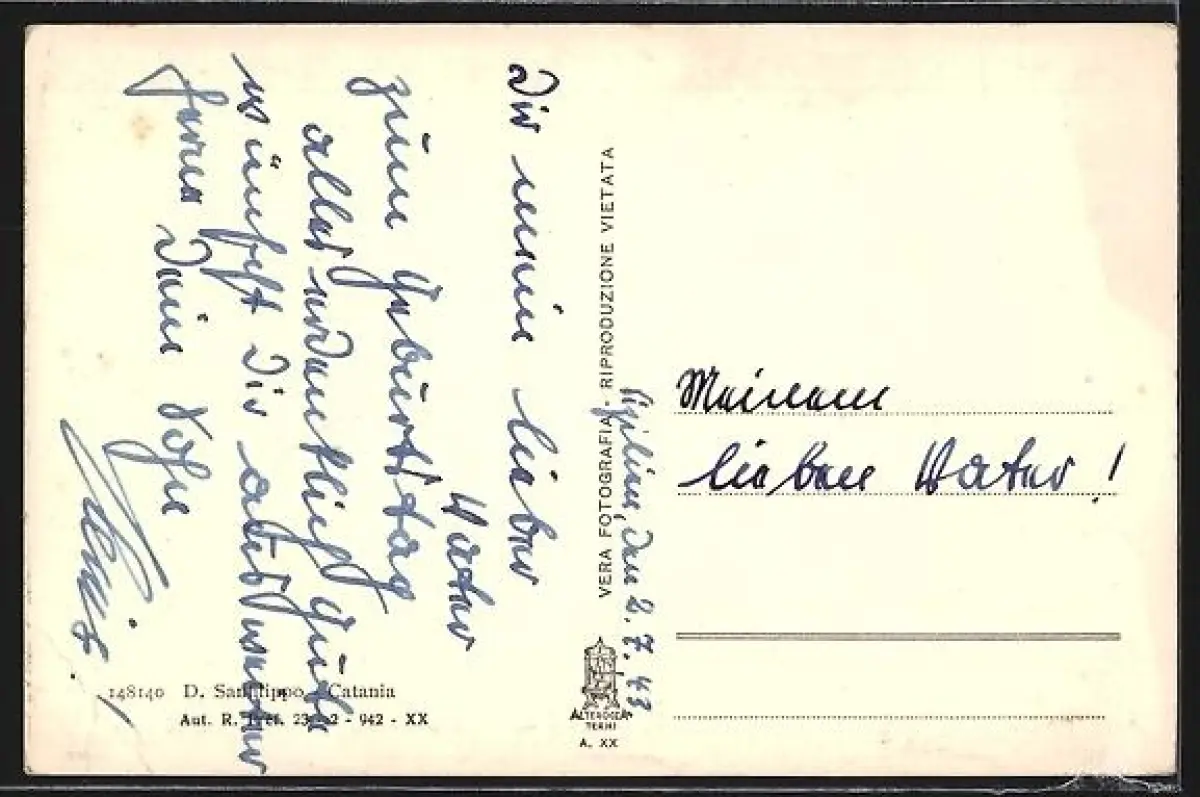 Dir mein lieber
Vater
zum Geburtstag
alles erdenklich Gute
wünscht Dir aus weiter
Ferne Dein Sohn
148140 D. Sanfilippo - Catania
Aut. R. Pref. 23-2 - 942 - XX
VERA FOTOGRAFIA - RIPRODUZIONE VIETATA
Sizilien, den 2.7.43
ALTEROCCA
TERNI
A. XX
Meinem
lieben Vater!